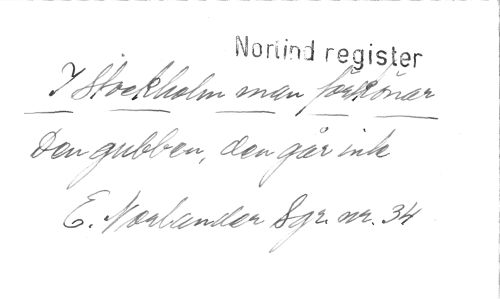 Norlind register
I Stockholm man förskönar
Den gubben, den går inte
E. Norlander Sgr. nr. 34